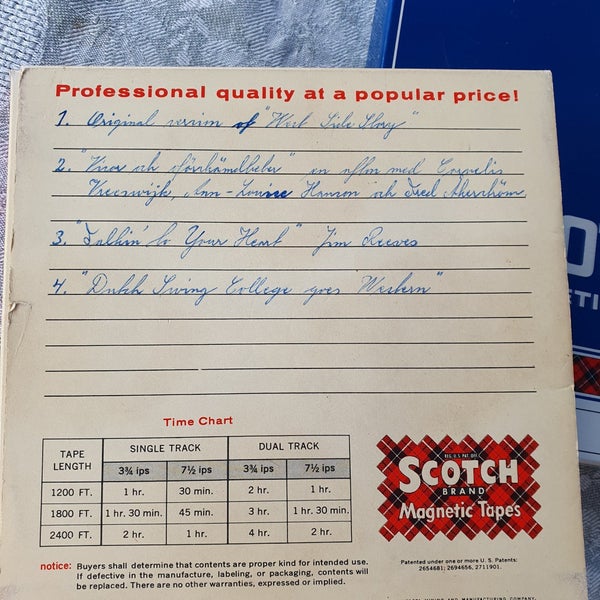 Professional quality at a popular price!
1. Original version of "West Side Story"
2. "Visor och oförskämdheter" en afton med Cornelis
Vreeswijk, Ann-Louise Hanson och Fred Åkerström
3. "Talkin' to Your Heart" Jim Reeves
4. "Dutch Swing College goes Western"
Time Chart
TAPE LENGTH SINGLE TRACK DUAL TRACK
3¾ ips 7½ ips 3¾ ips 7½ ips
1200 FT. 1 hr. 30 min. 2 hr. 1 hr.
1800 FT. 1 hr. 30 min. 45 min. 3 hr. 1 hr. 30 min.
2400 FT. 2 hr. 1 hr. 4 hr. 2 hr.
REG. U.S. PAT. OFF.
SCOTCH
BRAND
Magnetic Tapes
notice: Buyers shall determine that contents are proper kind for intended use.
If defective in the manufacture, labeling, or packaging, contents will
be replaced. There are no other warranties, expressed or implied.
Patented under one or more U. S. Patents:
2654681; 2694656, 2711901.
MINING AND MANUFACTURING COMPANY
OT
ETI